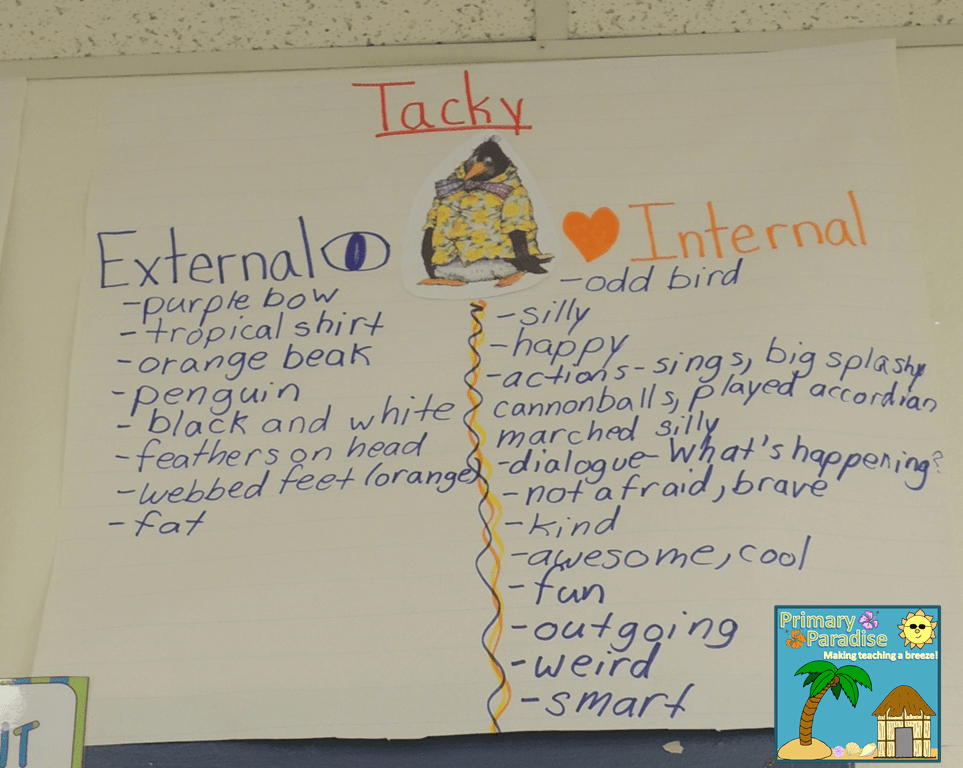 Tacky
External
-purple bow
-tropical shirt
-orange beak
-penguin
-black and white
-feathers on head
-webbed feet (orange)
-fat
Internal
-odd bird
-silly
-happy
-actions-sings, big splashy
cannonballs, played accordian
marched silly
-dialogue-What's happening?
-not afraid, brave
-kind
-awesome, cool
-fun
-outgoing
-weird
-smart
Primary
Paradise
Making teaching a breeze!